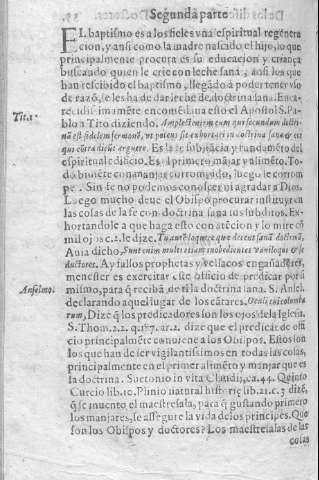 Segunda parte
EL baptismo es a los fieles vna espiritual regenera
cion, y ansi como la madre nascido el hijo, lo que
principalmente procura es su educacion y criança
buscando quien le crie con leche sana, ansi los que
han rescibido el baptismo, llegãdo a poder tener vso
de razõ, se les ha de dar leche de doctrina sana. Enca-
Tit. 1. rece
mẽte en
el Apostol S. Pa-
blo a Tito diziendo, Amplectentem eum qui secundum doctri-
nã est fidelem sermonẽ, vt potens sit exhortari in doctrina sana, et eos
qui cõtra dicũt arguere. Es la fe
y fundamẽto del
espiritual edificio. Es el primero mãjar y alimẽto. To-
do
con manjar corrompido, luego le corrom
pe. Sin fe no podemos conoscer ni agradar a Dios.
Luego mucho deue el Obispo procurar instituyr en
las cosas de la fe con doctrina sana sus subditos. Ex-
hortandole a que haga esto con atẽcion y lo mire cõ
mil ojos c. 2. le dize, Tu autẽ loquere quæ decent sanã doctrinã,
Auia dicho, Sunt enim multi etiam inobedientes vaniloqui et se-
ductores. Ay falsos prophetas y vellacos engañadores,
menester es exercitar este officio de predicar por si
Anselmo. mismo, para q̃ reciba de ti la doctrina sana. S. Ansel.
declarando aquel lugar de los cãtares, Oculi tui columba
rum, Dize q̃ los predicadores son los ojos de la Iglesia.
S. Thom. 2. 2. q. 187. ar. 2. dize que el predicar de offi
cio principalmẽte conuiene a los Obispos. Estos son
los que han de ser vigilantissimos en todas las cosas,
principalmente en el primer alimẽto y manjar que es
la doctrina. Suetonio in vita Claudij, ca. 44. Quinto
Curcio lib. 10. Plinio natural historiæ lib. 21. c. 3 dizẽ,
q̃ se inuento el maestresala, para q̃ gustando primero
los manjares, se assegure la vida de los principes. Que
son los Obispos y doctores? Los maestresalas de las
cosas